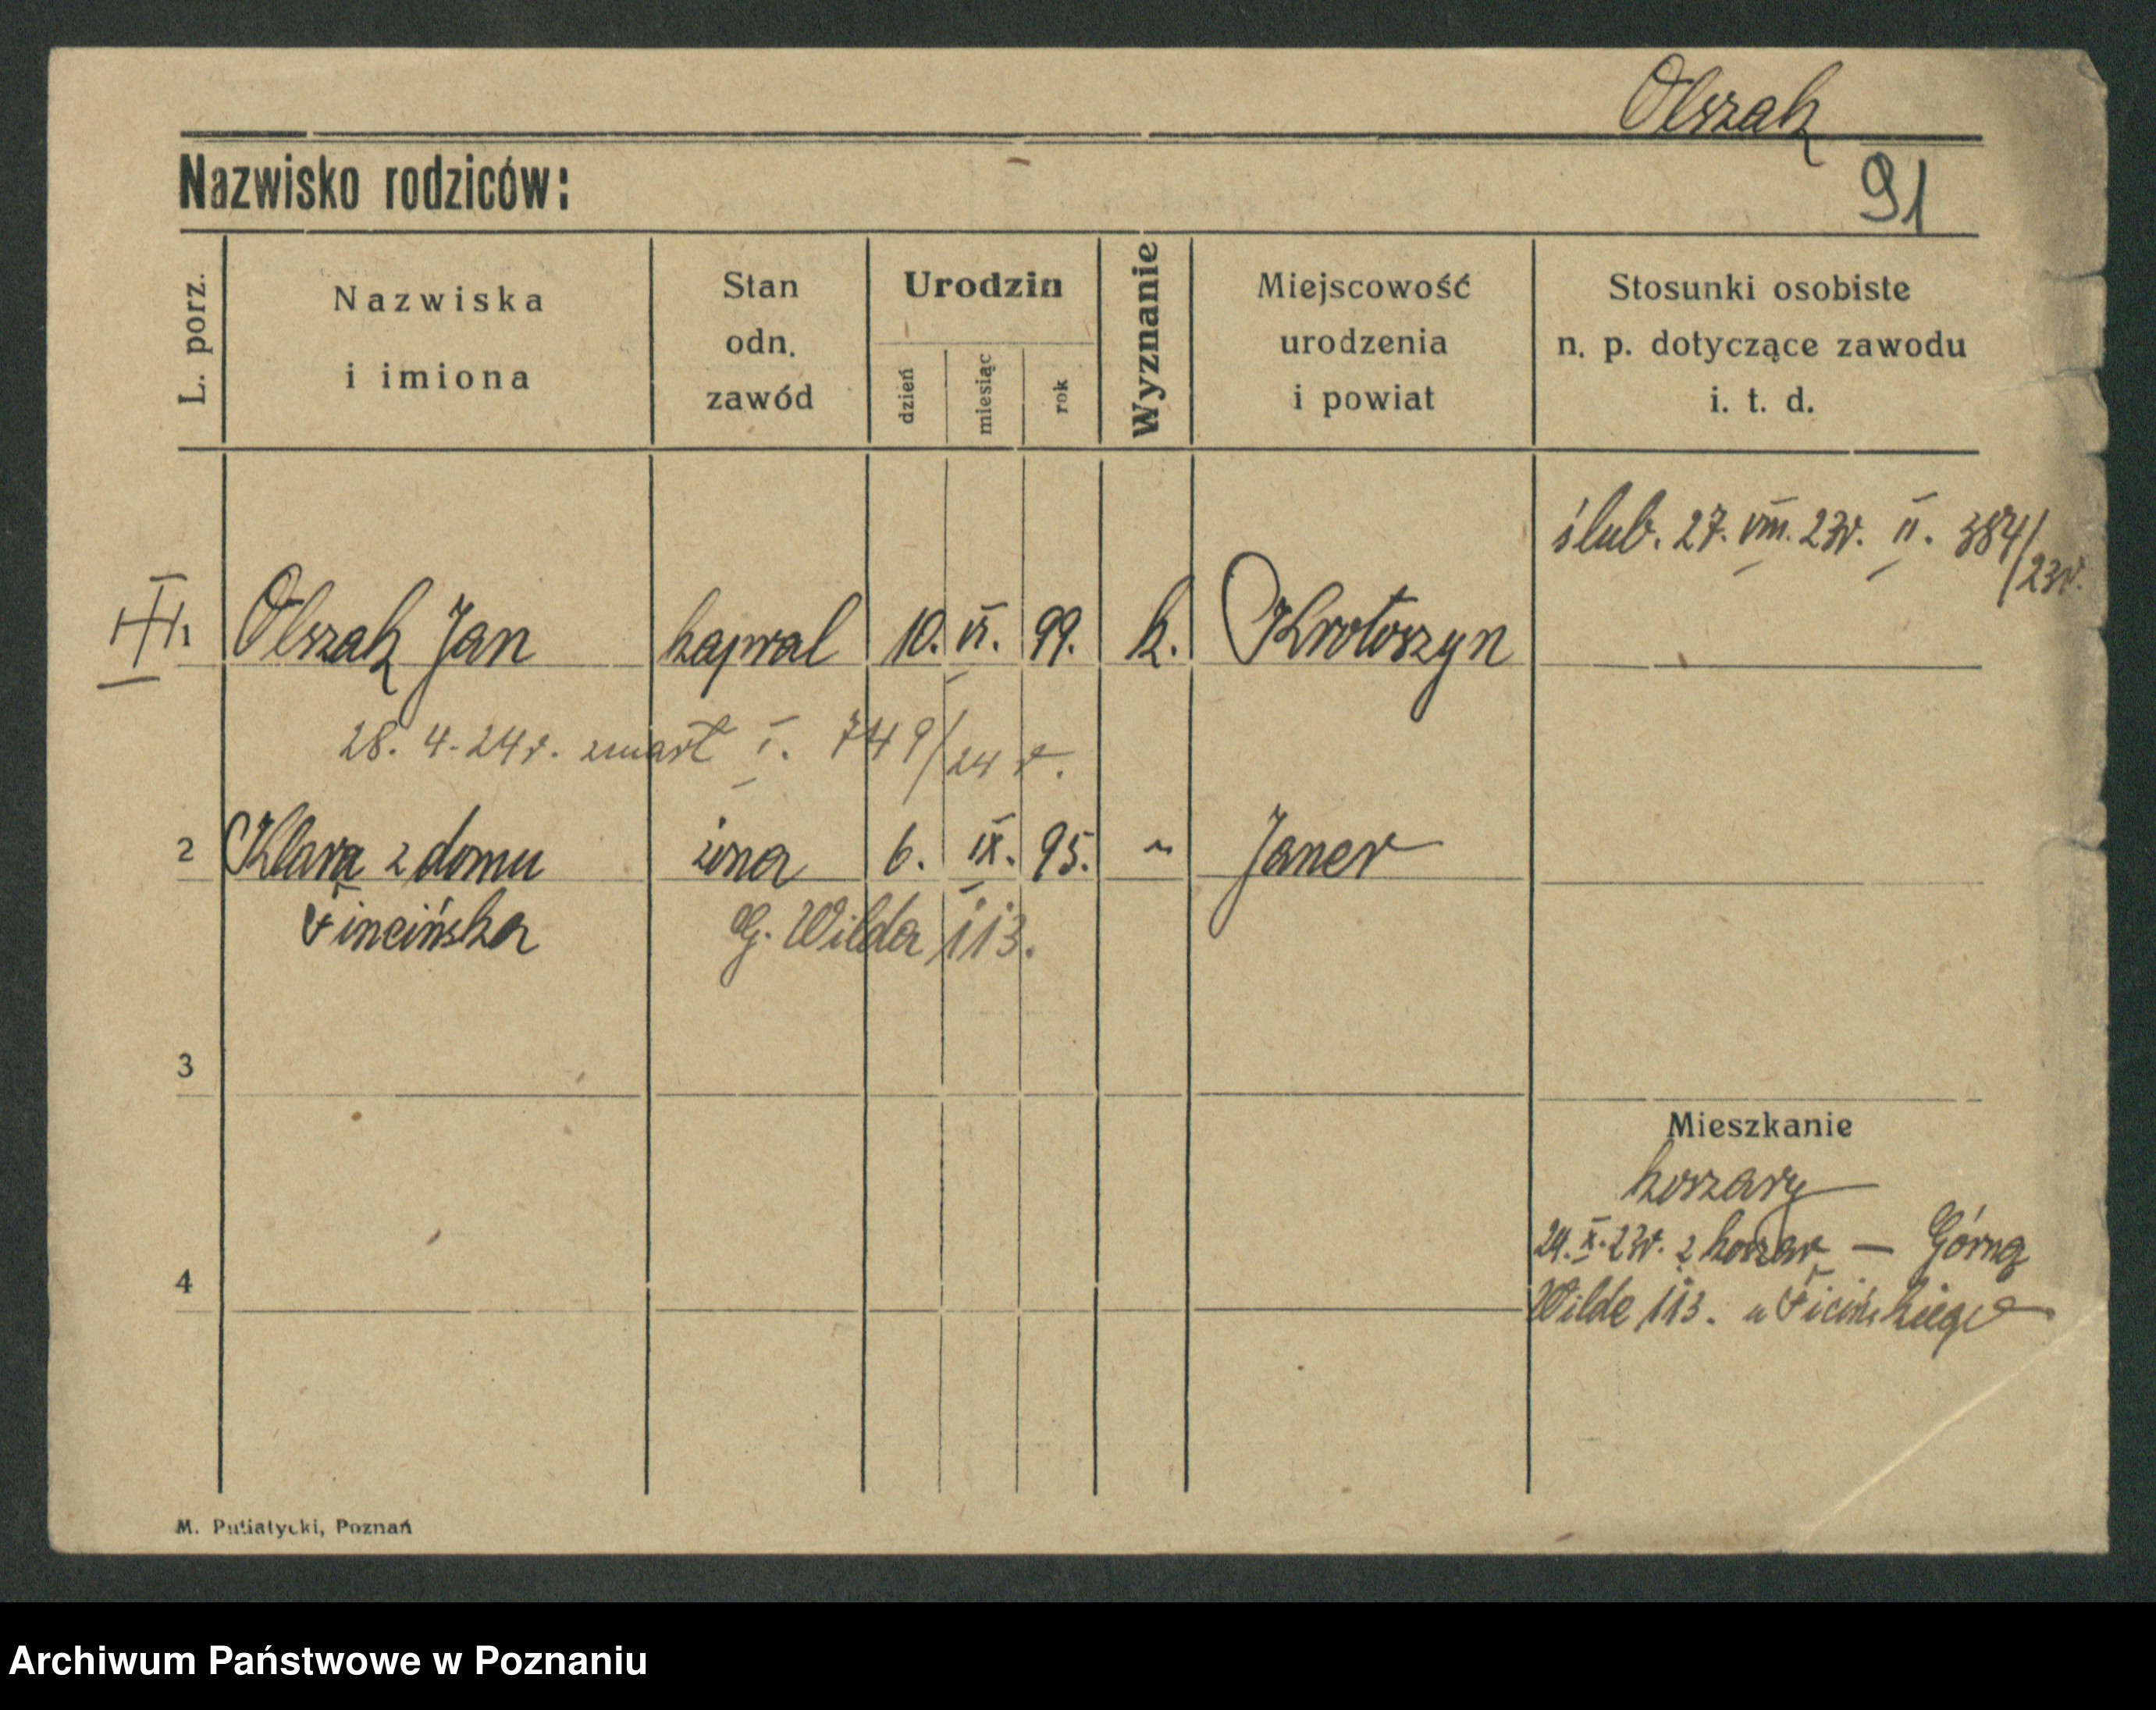 Olszak
Nazwisko rodziców:
91
L. porz.
Nazwiska
i imiona
Stan
odn.
zawód
Urodzin
dzień
miesiąc
rok
Wyznanie
Miejscowość
urodzenia
i powiat
Stosunki osobiste
n. p. dotyczące zawodu
i. t. d.
ślub. 27. VIII. 23r. II. 384/23r.
1 Olszak Jan kapral 10. VI. 99. k. Krotoszyn
28. 4. 24r. zmarł I. 749/24 r.
2 Klara z domu żona 6. IX. 95. " Janer
Fincińska G. Wilda 113.
3
Mieszkanie
koszary
24. X. 23r. z koszar — Górną
4
Wildę 113. u Ficińskiego
M. Putiatycki, Poznań
Archiwum Państwowe w Poznaniu